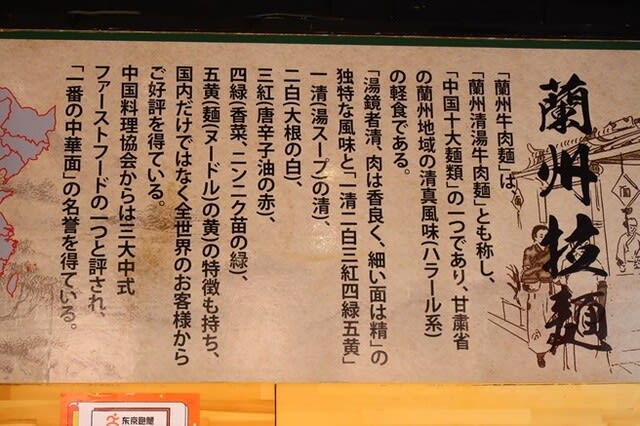 蘭州拉麺
「蘭州牛肉麺」は、
「蘭州清湯牛肉麺」とも称し、
「中国十大麺類」の一つであり、甘粛省
の蘭州地域の清真風味(ハラール系)
の軽食である。
「湯鏡者清、肉は香良く、細い面は精」の
独特な風味と「一清二白三紅四緑五黄」
一清(湯スープ)の清)、
二白(大根の白)、
三紅(唐辛子油の赤)、
四緑(香菜、ニンニク苗の緑)、
五黄(麺(ヌードル)の黄)の特徴も持ち、
国内だけではなく全世界のお客様から
ご好評を得ている。
中国料理協会からは三大中式
ファーストフードの一つと評され、
「一番の中華面」の名誉を得ている。
东京跑腿